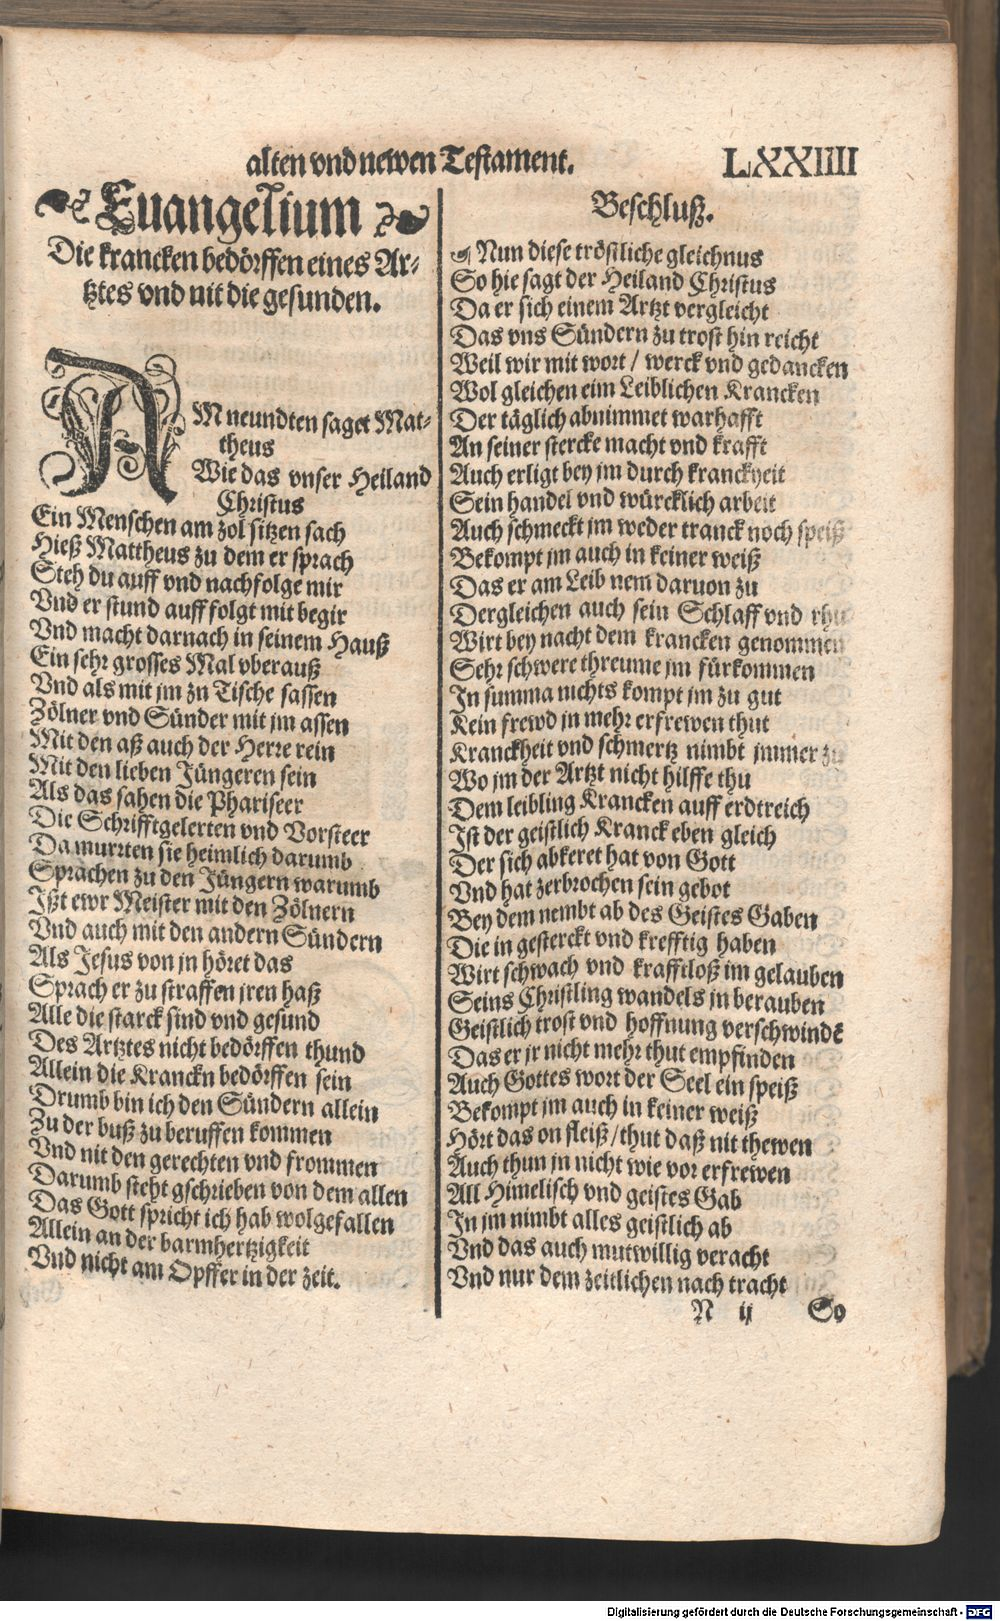 alten vnd newen Testament. LXXIIII
Euangelium
Die krancken bedörffen eines Ar⸗
tztes vnd nit die gesunden.
AM neundten saget Mat⸗
theus
Wie das vnser Heiland
Christus
Ein Menschen am zol sitzen sach
Hieß Mattheus zu dem er sprach
Steh du auff vnd nachfolge mir
Vnd er stund auff folgt mit begir
Vnd macht darnach in seinem Hauß
Ein sehr grosses Mal vberauß
Vnd als mit jm zu Tische sassen
Zölner vnd Sünder mit jm assen
Mit den aß auch der Herre rein
Mit den lieben Jüngeren sein
Als das sahen die Phariseer
Die Schrifftgelerten vnd Vorsteer
Da murrten sie heimlich darumb
Sprachen zu den Jüngern warumb
Jßt ewr Meister mit den Zölnern
Vnd auch mit den andern Sündern
Als Jesus von jn höret das
Sprach er zu straffen jren haß
Alle die starck sind vnd gesund
Des Artztes nicht bedörffen thund
Allein die Kranckn bedörffen sein
Drumb bin ich den Sündern allein
Zu der buß zu beruffen kommen
Vnd nit den gerechten vnd frommen
Darumb steht gschrieben von dem allen
Das Gott spricht ich hab wolgefallen
Allein an der barmhertzigkeit
Vnd nicht am Opffer in der zeit.
Beschluß.
Nun diese tröstliche gleichnus
So hie sagt der Heiland Christus
Da er sich einem Artzt vergleicht
Das vns Sündern zu trost hin reicht
Weil wir mit wort / werck vnd gedancken
Wol gleichen eim Leiblichen Krancken
Der täglich abnimmet warhafft
An seiner stercke macht vnd krafft
Auch erligt bey jm durch kranckheit
Sein handel vnd würcklich arbeit
Auch schmeckt jm weder tranck noch speiß
Bekompt jm auch in keiner weiß
Das er am Leib nem daruon zu
Dergleichen auch sein Schlaff vnd rhu
Wirt bey nacht dem krancken genommen
Sehr schwere threume jm fürkommen
In summa nichts kompt jm zu gut
Kein frewd jn mehr erfrewen thut
Kranckheit vnd schmertz nimbt jmmer zu
Wo jm der Artzt nicht hilffe thu
Dem leibling Krancken auff erdtreich
Jst der geistlich Kranck eben gleich
Der sich abkeret hat von Gott
Vnd hat zerbrochen sein gebot
Bey dem nembt ab des Geistes Gaben
Die in gesterckt vnd krefftig haben
Wirt schwach vnd krafftloß im gelauben
Seins Christling wandels jn berauben
Geistlich trost vnd hoffnung verschwindē
Das er jr nicht mehr thut empfinden
Auch Gottes wort der Seel ein speiß
Bekompt jm auch in keiner weiß
Hört das on fleiß / thut daß nit thewen
Auch thun jn nicht wie vor erfrewen
All Himelisch vnd geistes Gab
In jm nimbt alles geistlich ab
Vnd das auch mutwillig veracht
Vnd nur dem zeitlichen nach tracht
N ij So
Digitalisierung gefördert durch die Deutsche Forschungsgemeinschaft - DFG